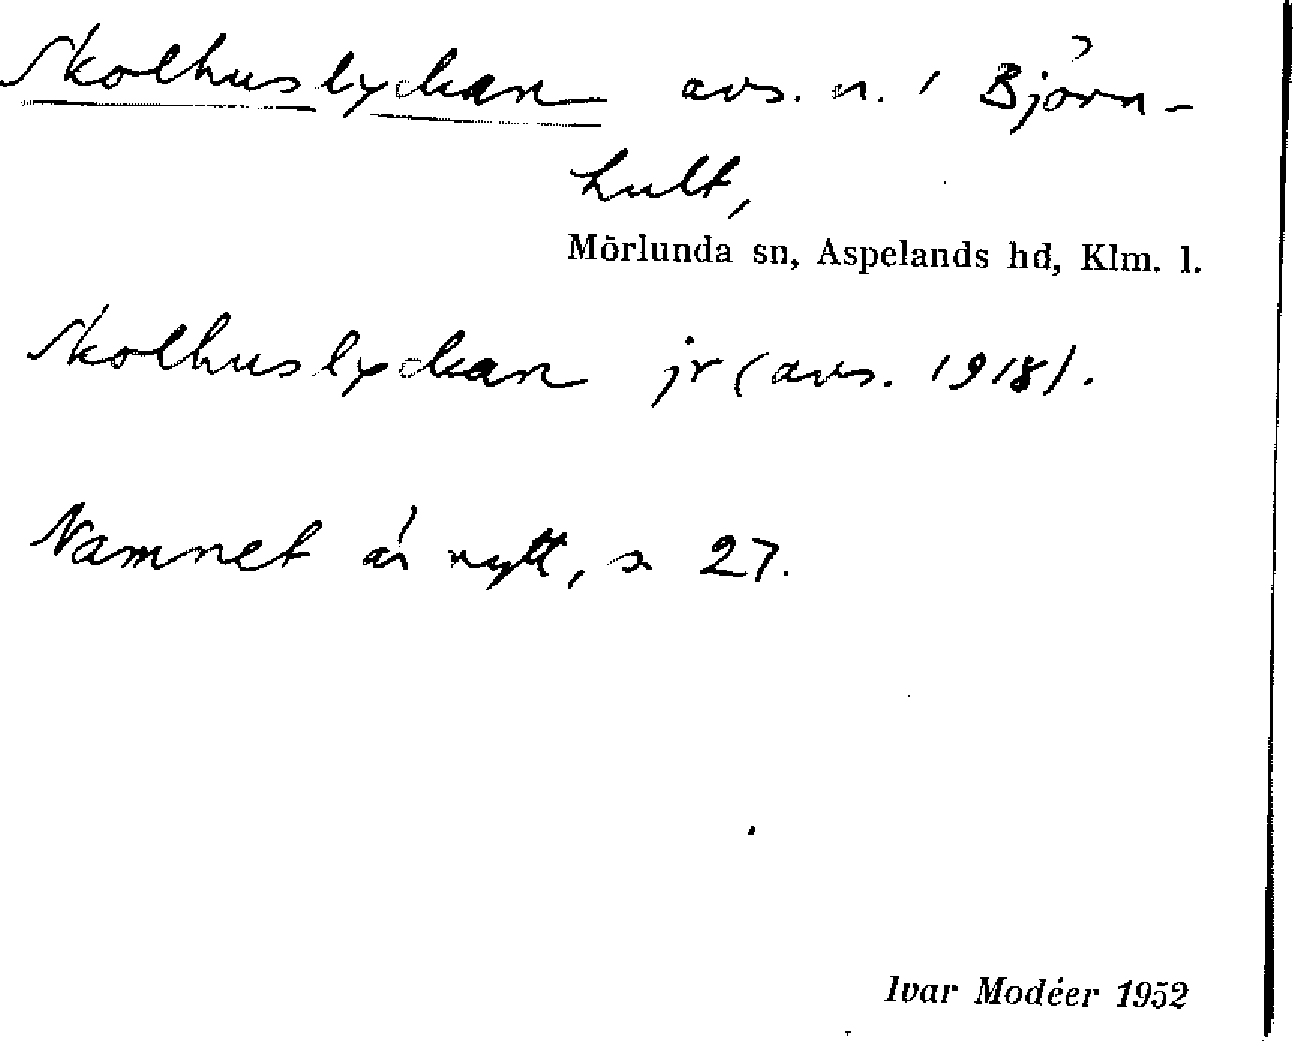 Skolhuslyckan avs. n. i Björn-
hult,
Mörlunda sn, Aspelands hd, Klm. l.
Skolhuslyckan jr (avs. 1918).
Namnet är nytt, s 27.
Ivar Modéer 1952